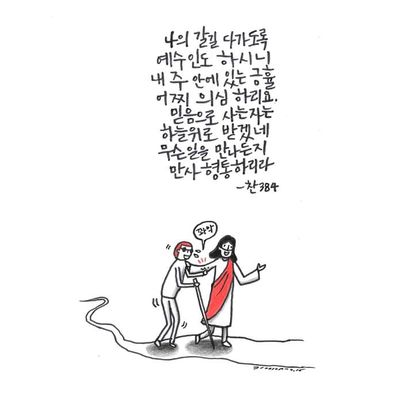 나의 갈길 다가도록
예수인도 하시니
내 주 안에 있는 긍휼
어찌 의심 하리요.
믿음으로 사는자는
하늘위로 받겠네
무슨일을 만나든지
만사 형통하리라
-찬384
꽈악